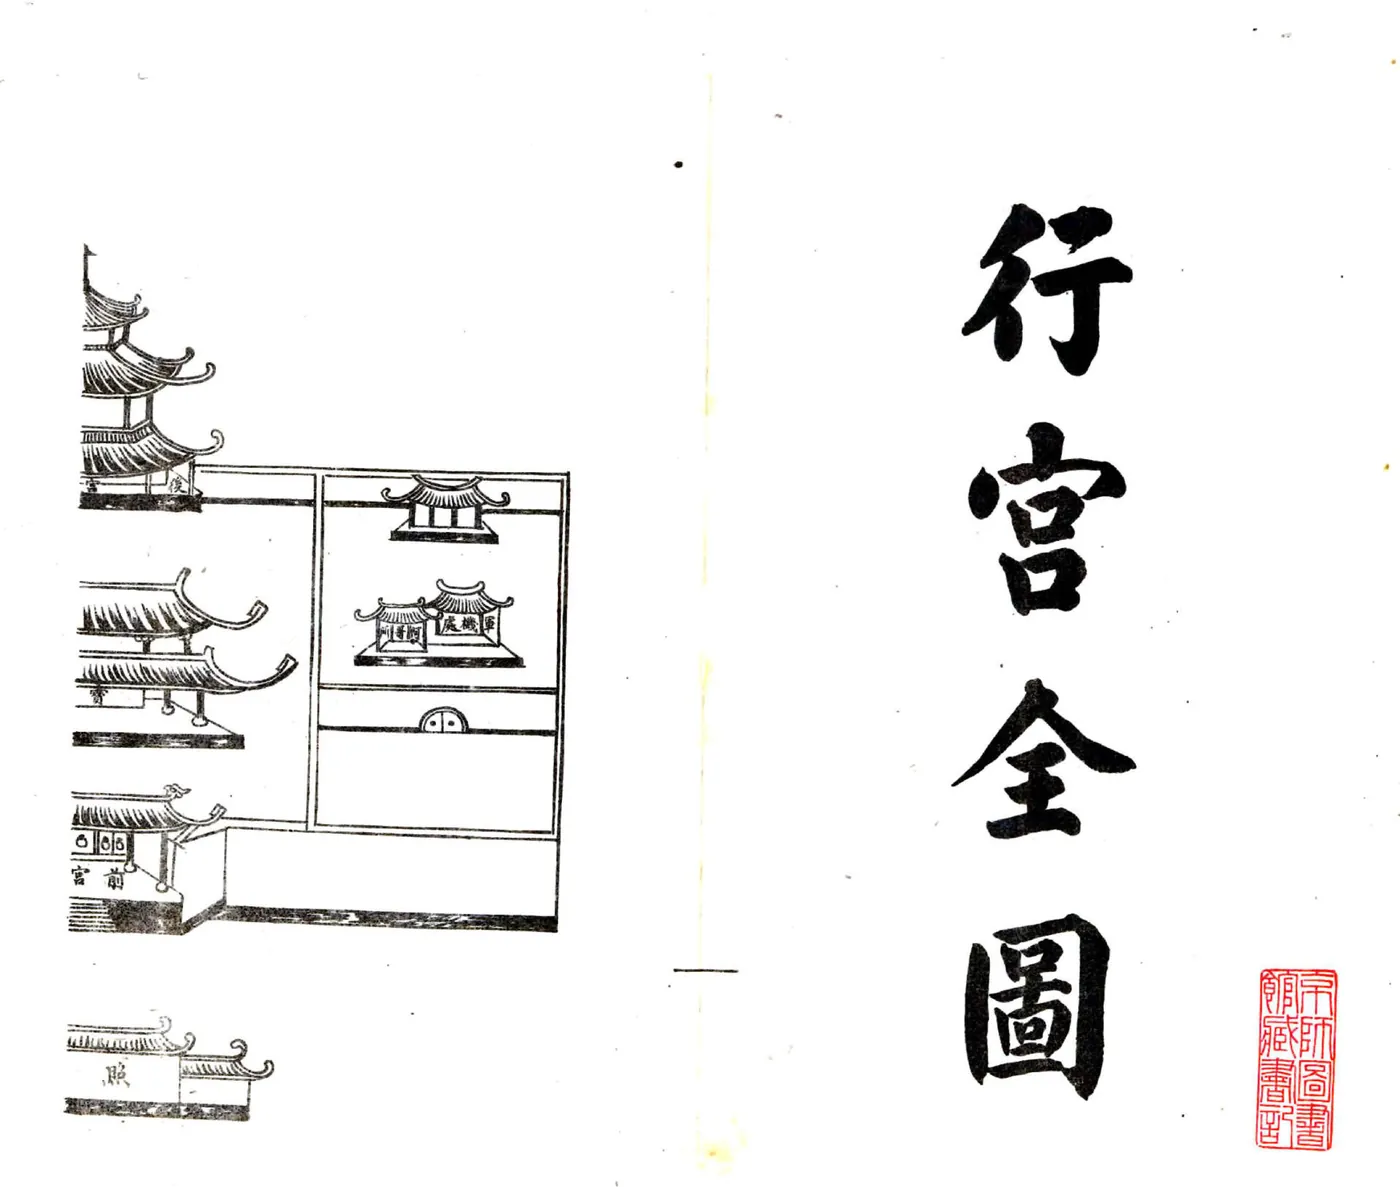 行宮全圖
京師圖書
館藏書記
後宮
軍機處
前宮
照